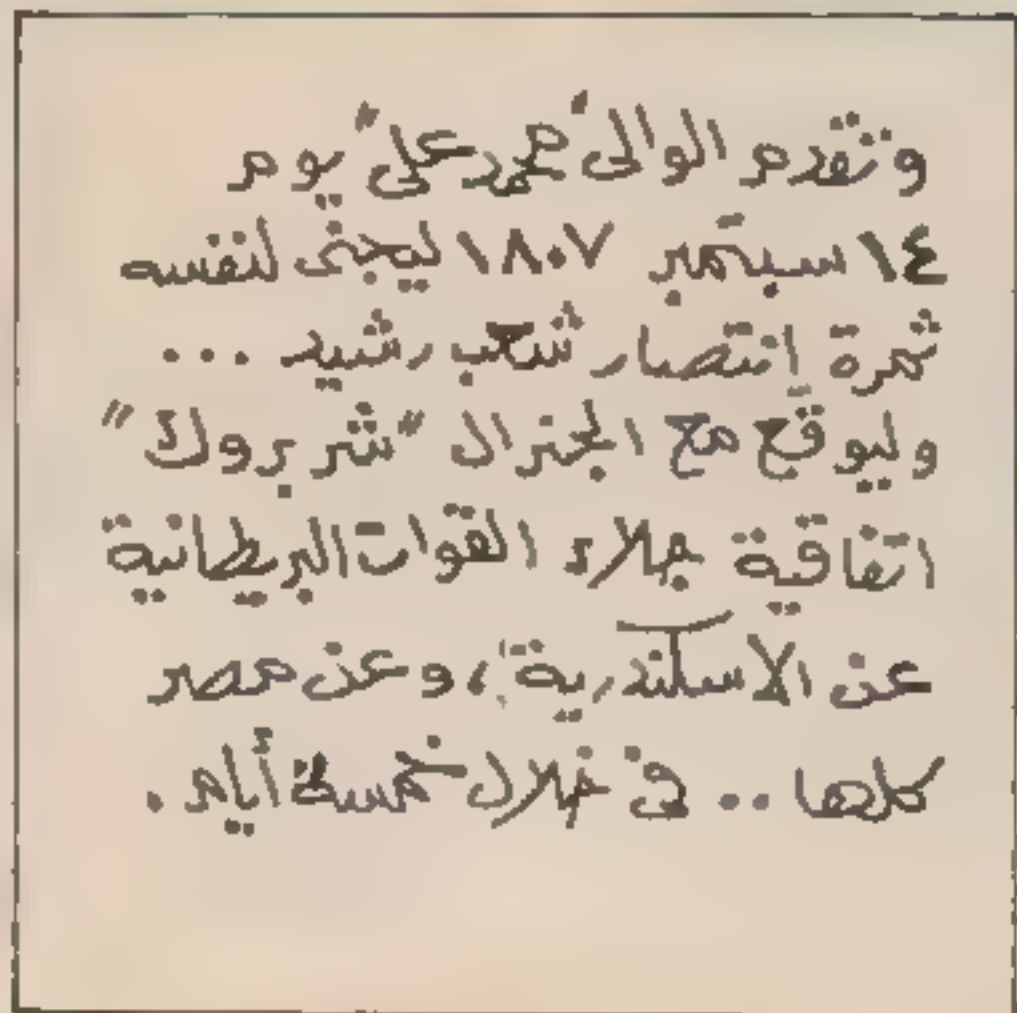 وتقدم الوالى "محمد على" يوم
١٤ سبتمبر ١٨٠٧ ليجنى لنفسه
ثمرة إنتصار شعب رشيد ...
وليوقع مع الجنرال "شربروك"
اتفاقية جلاء القوات البريطانية
عن الاسكندرية، وعن مصر
كلها .. فى خلال خمسة أيام .